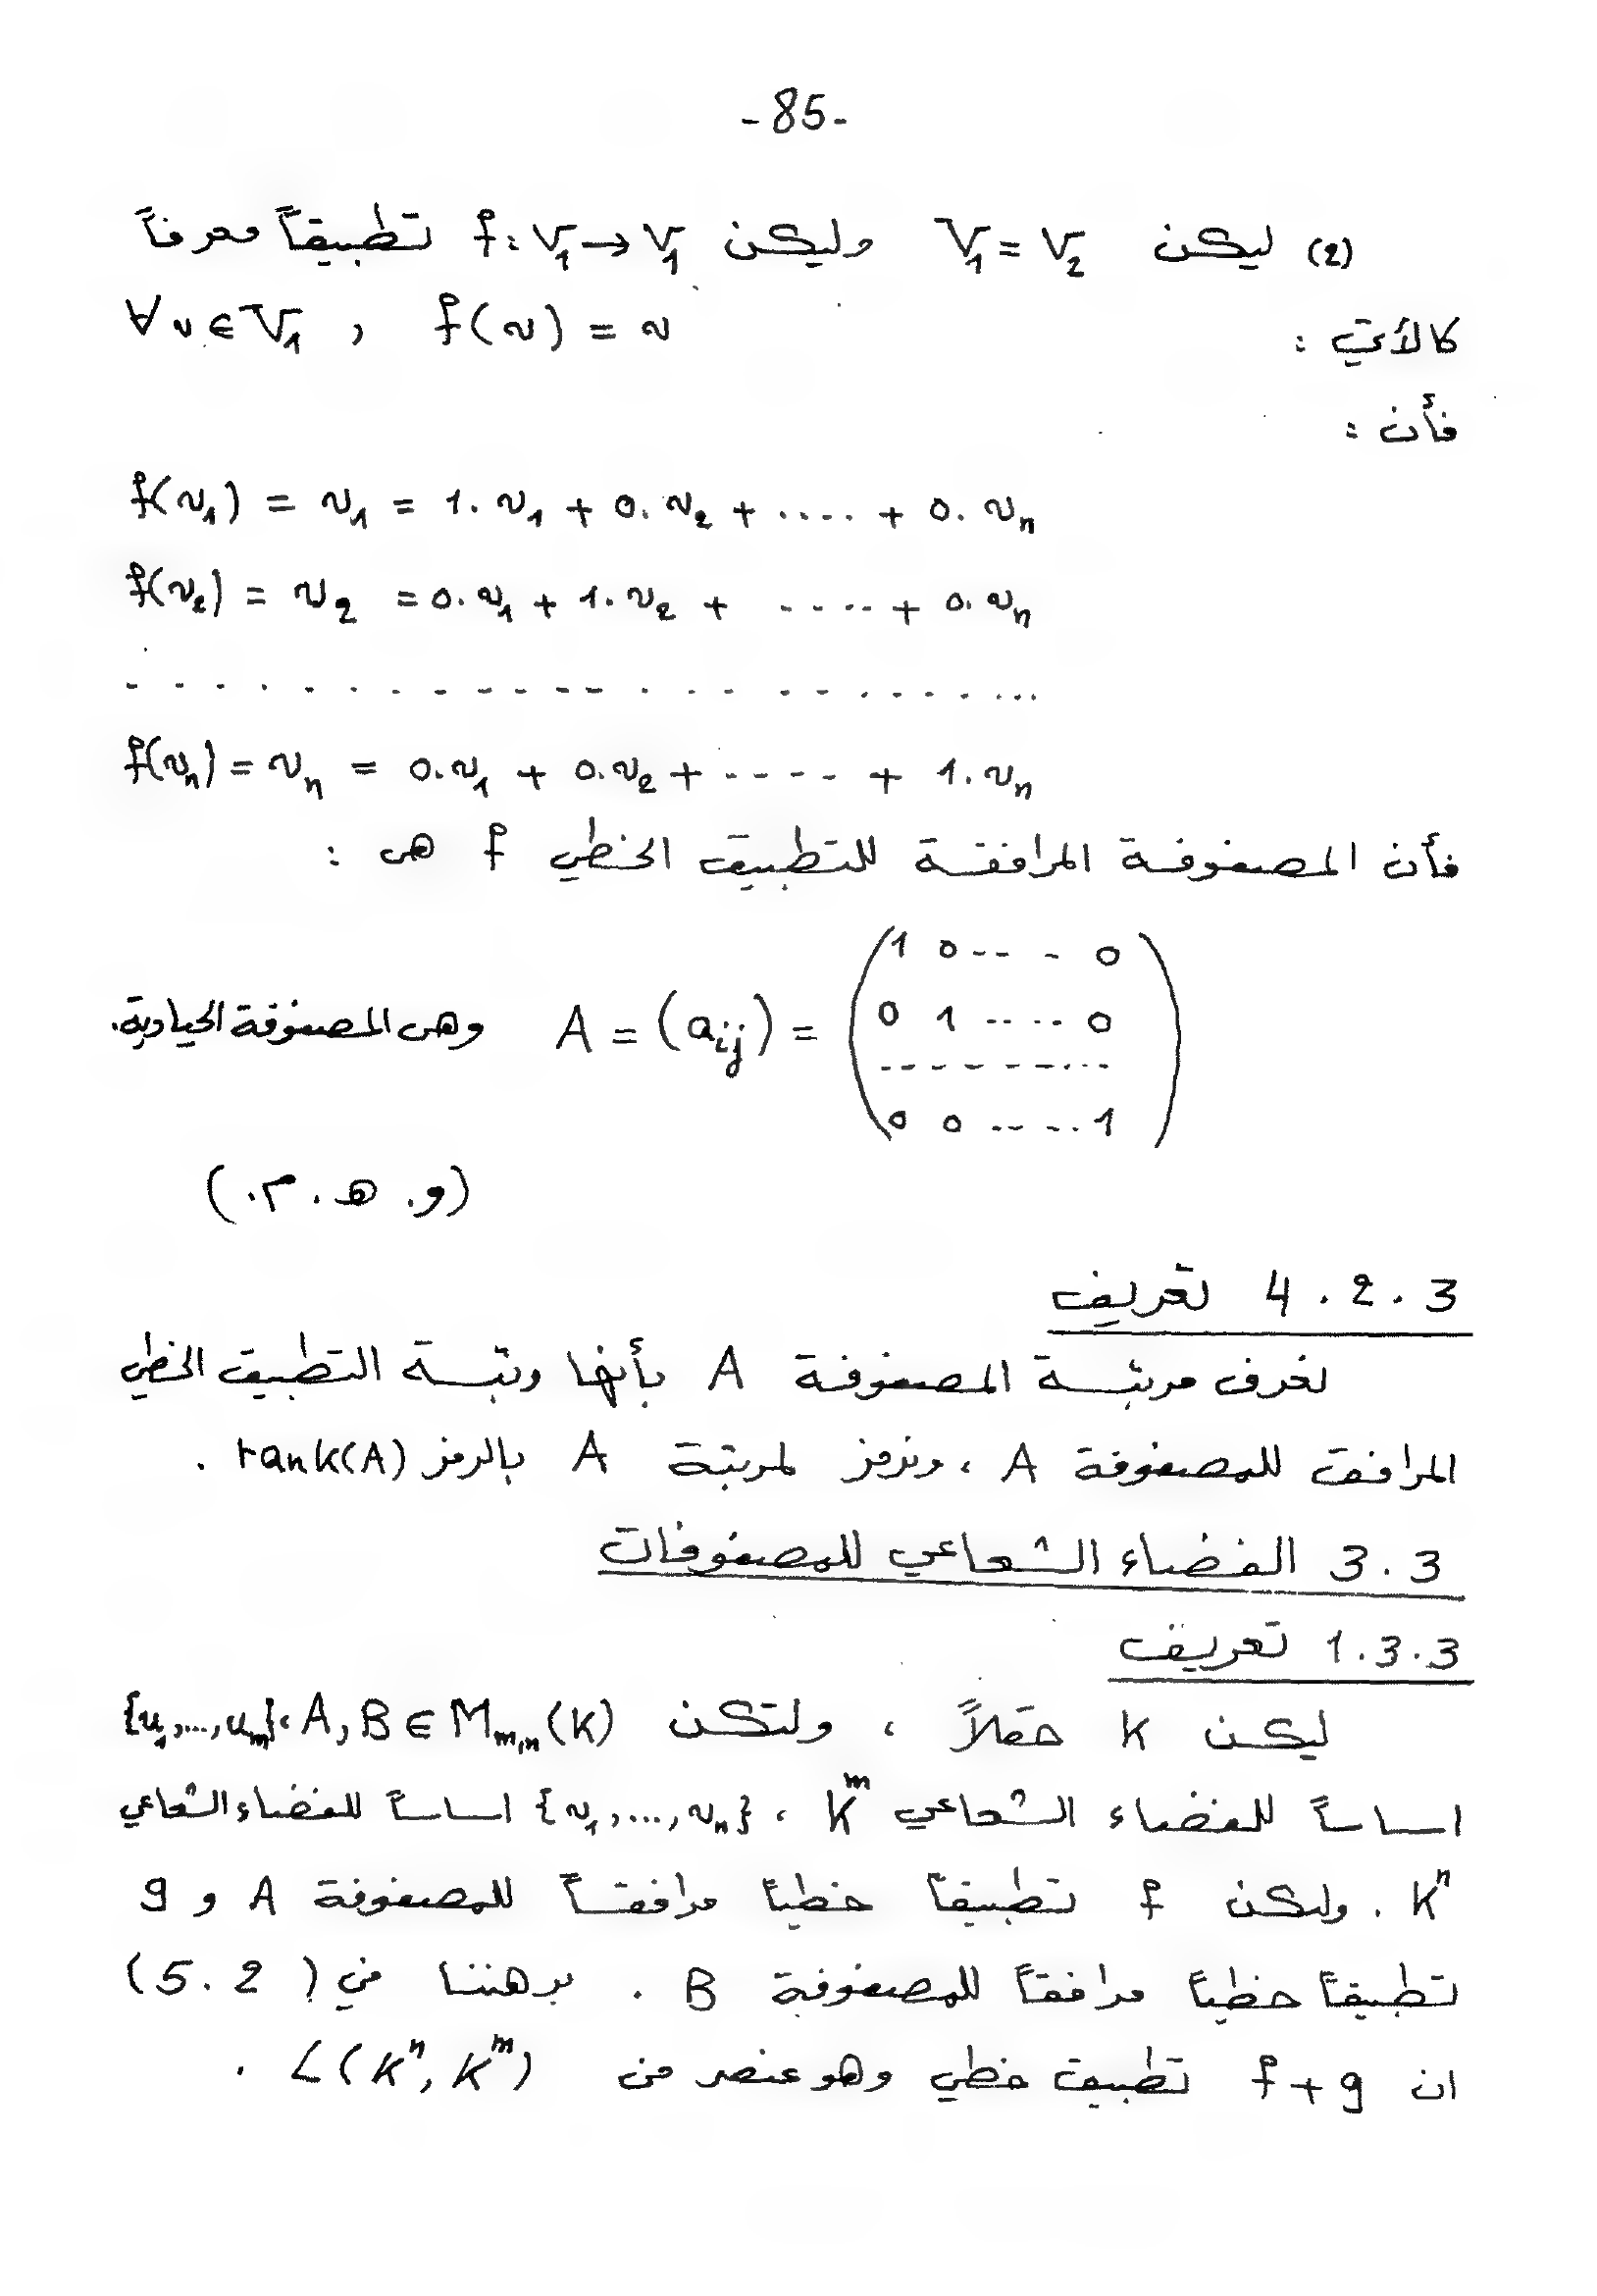 -85-
(2) ليكن V₁ = V₂ وليكن f: V₁ → V₁ تطبيقاً معرفاً
كالآتي : ∀ v ∈ V₁ , f(v) = v
فأن :
f(v₁) = v₁ = 1. v₁ + 0. v₂ + ..... + 0. vₙ
f(v₂) = v₂ = 0. v₁ + 1. v₂ + ----- + 0. vₙ
- - - - - - - - - - - - - - - - - - - - - - -
f(vₙ) = vₙ = 0. v₁ + 0. v₂ + ----- + 1. vₙ
فأن المصفوفة المرافقة للتطبيق الخطي f هي :
1 0 -- - - 0
A = (aᵢⱼ) = 0 1 ----- 0 وهي المصفوفة الحيادية.
- - - - - - - - -
0 0 ----- 1
(و. ه. م.)
3 . 2 . 4 تعريف
نعرف مرتبة المصفوفة A بأنها رتبة التطبيق الخطي
المرافق للمصفوفة A ، ونرمز لمرتبة A بالرمز rank(A) .
3 . 3 الفضاء الشعاعي للمصفوفات
3 . 3 . 1 تعريف
ليكن K حقلاً ، ولتكن A, B ∈ Mₘ,ₙ(K) ، {u₁,...,uₘ}
اساساً للفضاء الشعاعي Kᵐ ، {v₁,...,vₙ} اساساً للفضاء الشعاعي
Kⁿ . وليكن f تطبيقاً خطياً مرافقاً للمصفوفة A و g
تطبيقاً خطياً مرافقاً للمصفوفة B . برهننا في ( 2 . 5 )
ان f + g تطبيق خطي وهو عنصر من L(Kⁿ, Kᵐ) .